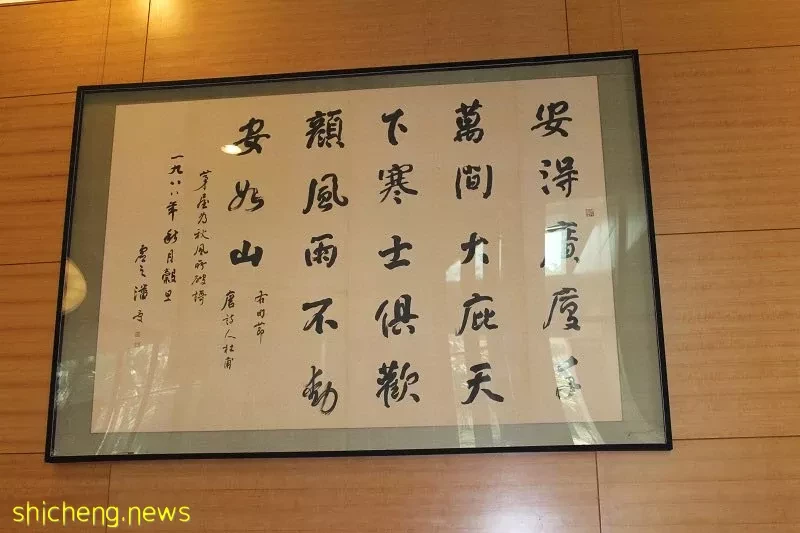 安得廣廈千
萬間大庇天
下寒士俱歡
顏風雨不動
安如山
右句節
唐詩人杜甫
茅屋為秋風所破謌
一九八八年秋月穀旦
虛之潘受
shicheng.news